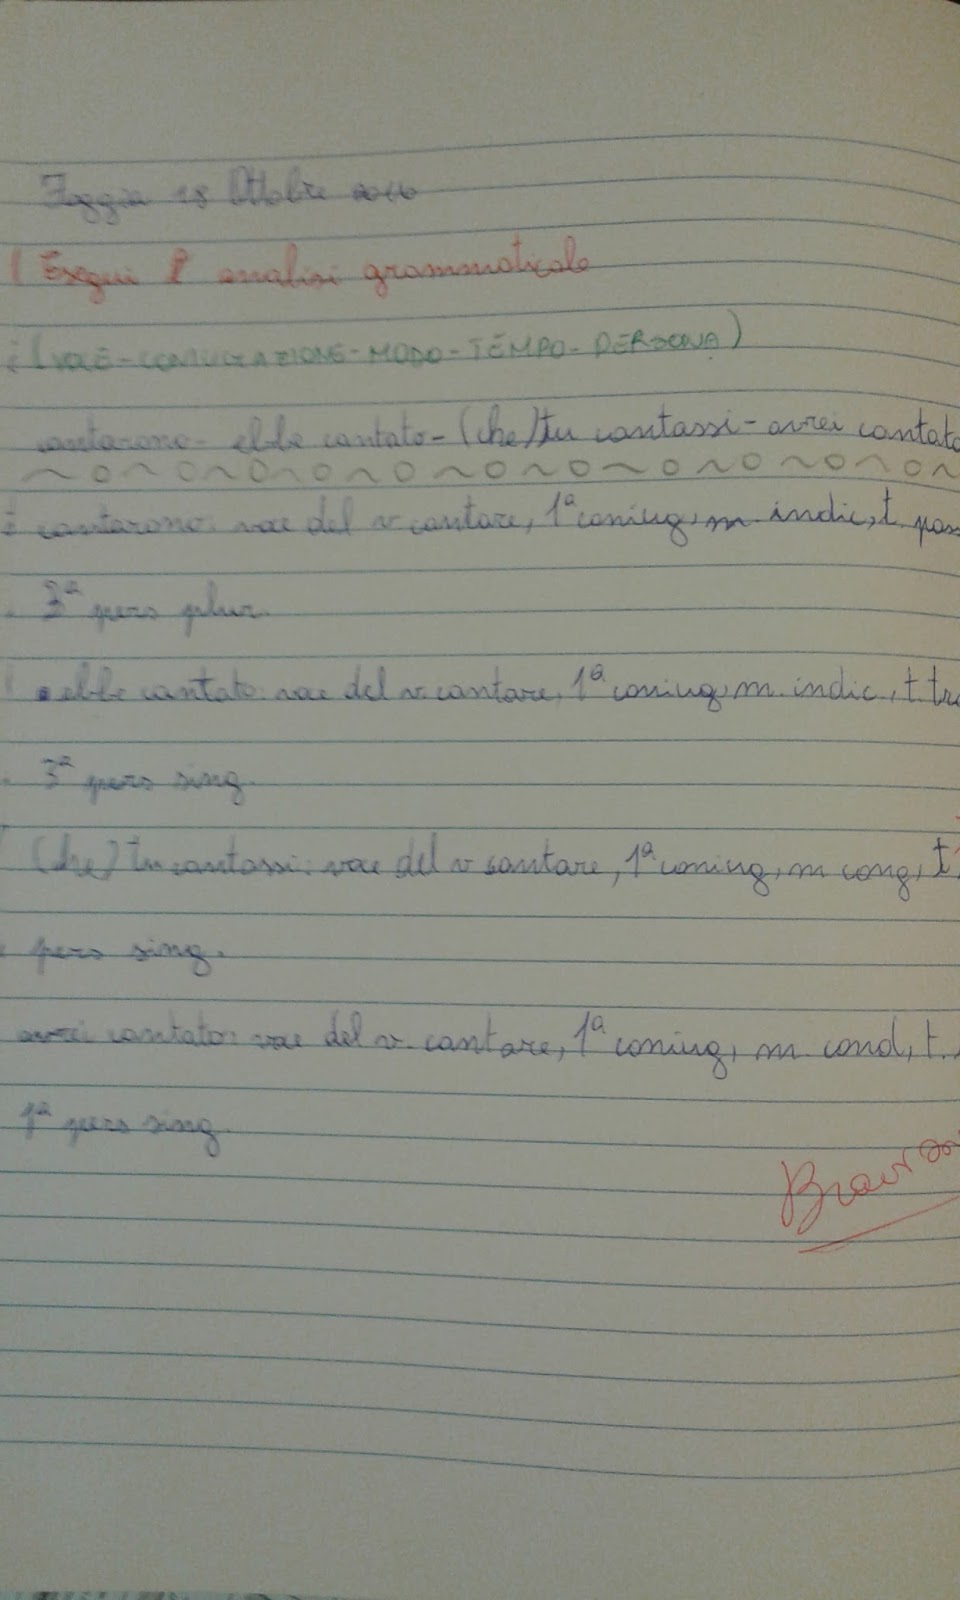 Foggia 18 Ottobre 2016
Esegui l' analisi grammaticale
(VOCE-CONIUGAZIONE-MODO-TEMPO-PERSONA)
cantarono - ebbe cantato - (che) tu cantassi - avrei cantato
cantarono: voce del v cantare, 1ª coniug, m indic, t. pass
3ª pers plur.
ebbe cantato: voce del v. cantare, 1ª coniug, m. indic., t. tra
3ª pers sing.
(che) tu cantassi: voce del v cantare, 1ª coniug, m cong, t.
pers sing.
avrei cantato: voce del v. cantare, 1ª coniug, m cond, t.
1ª pers sing.